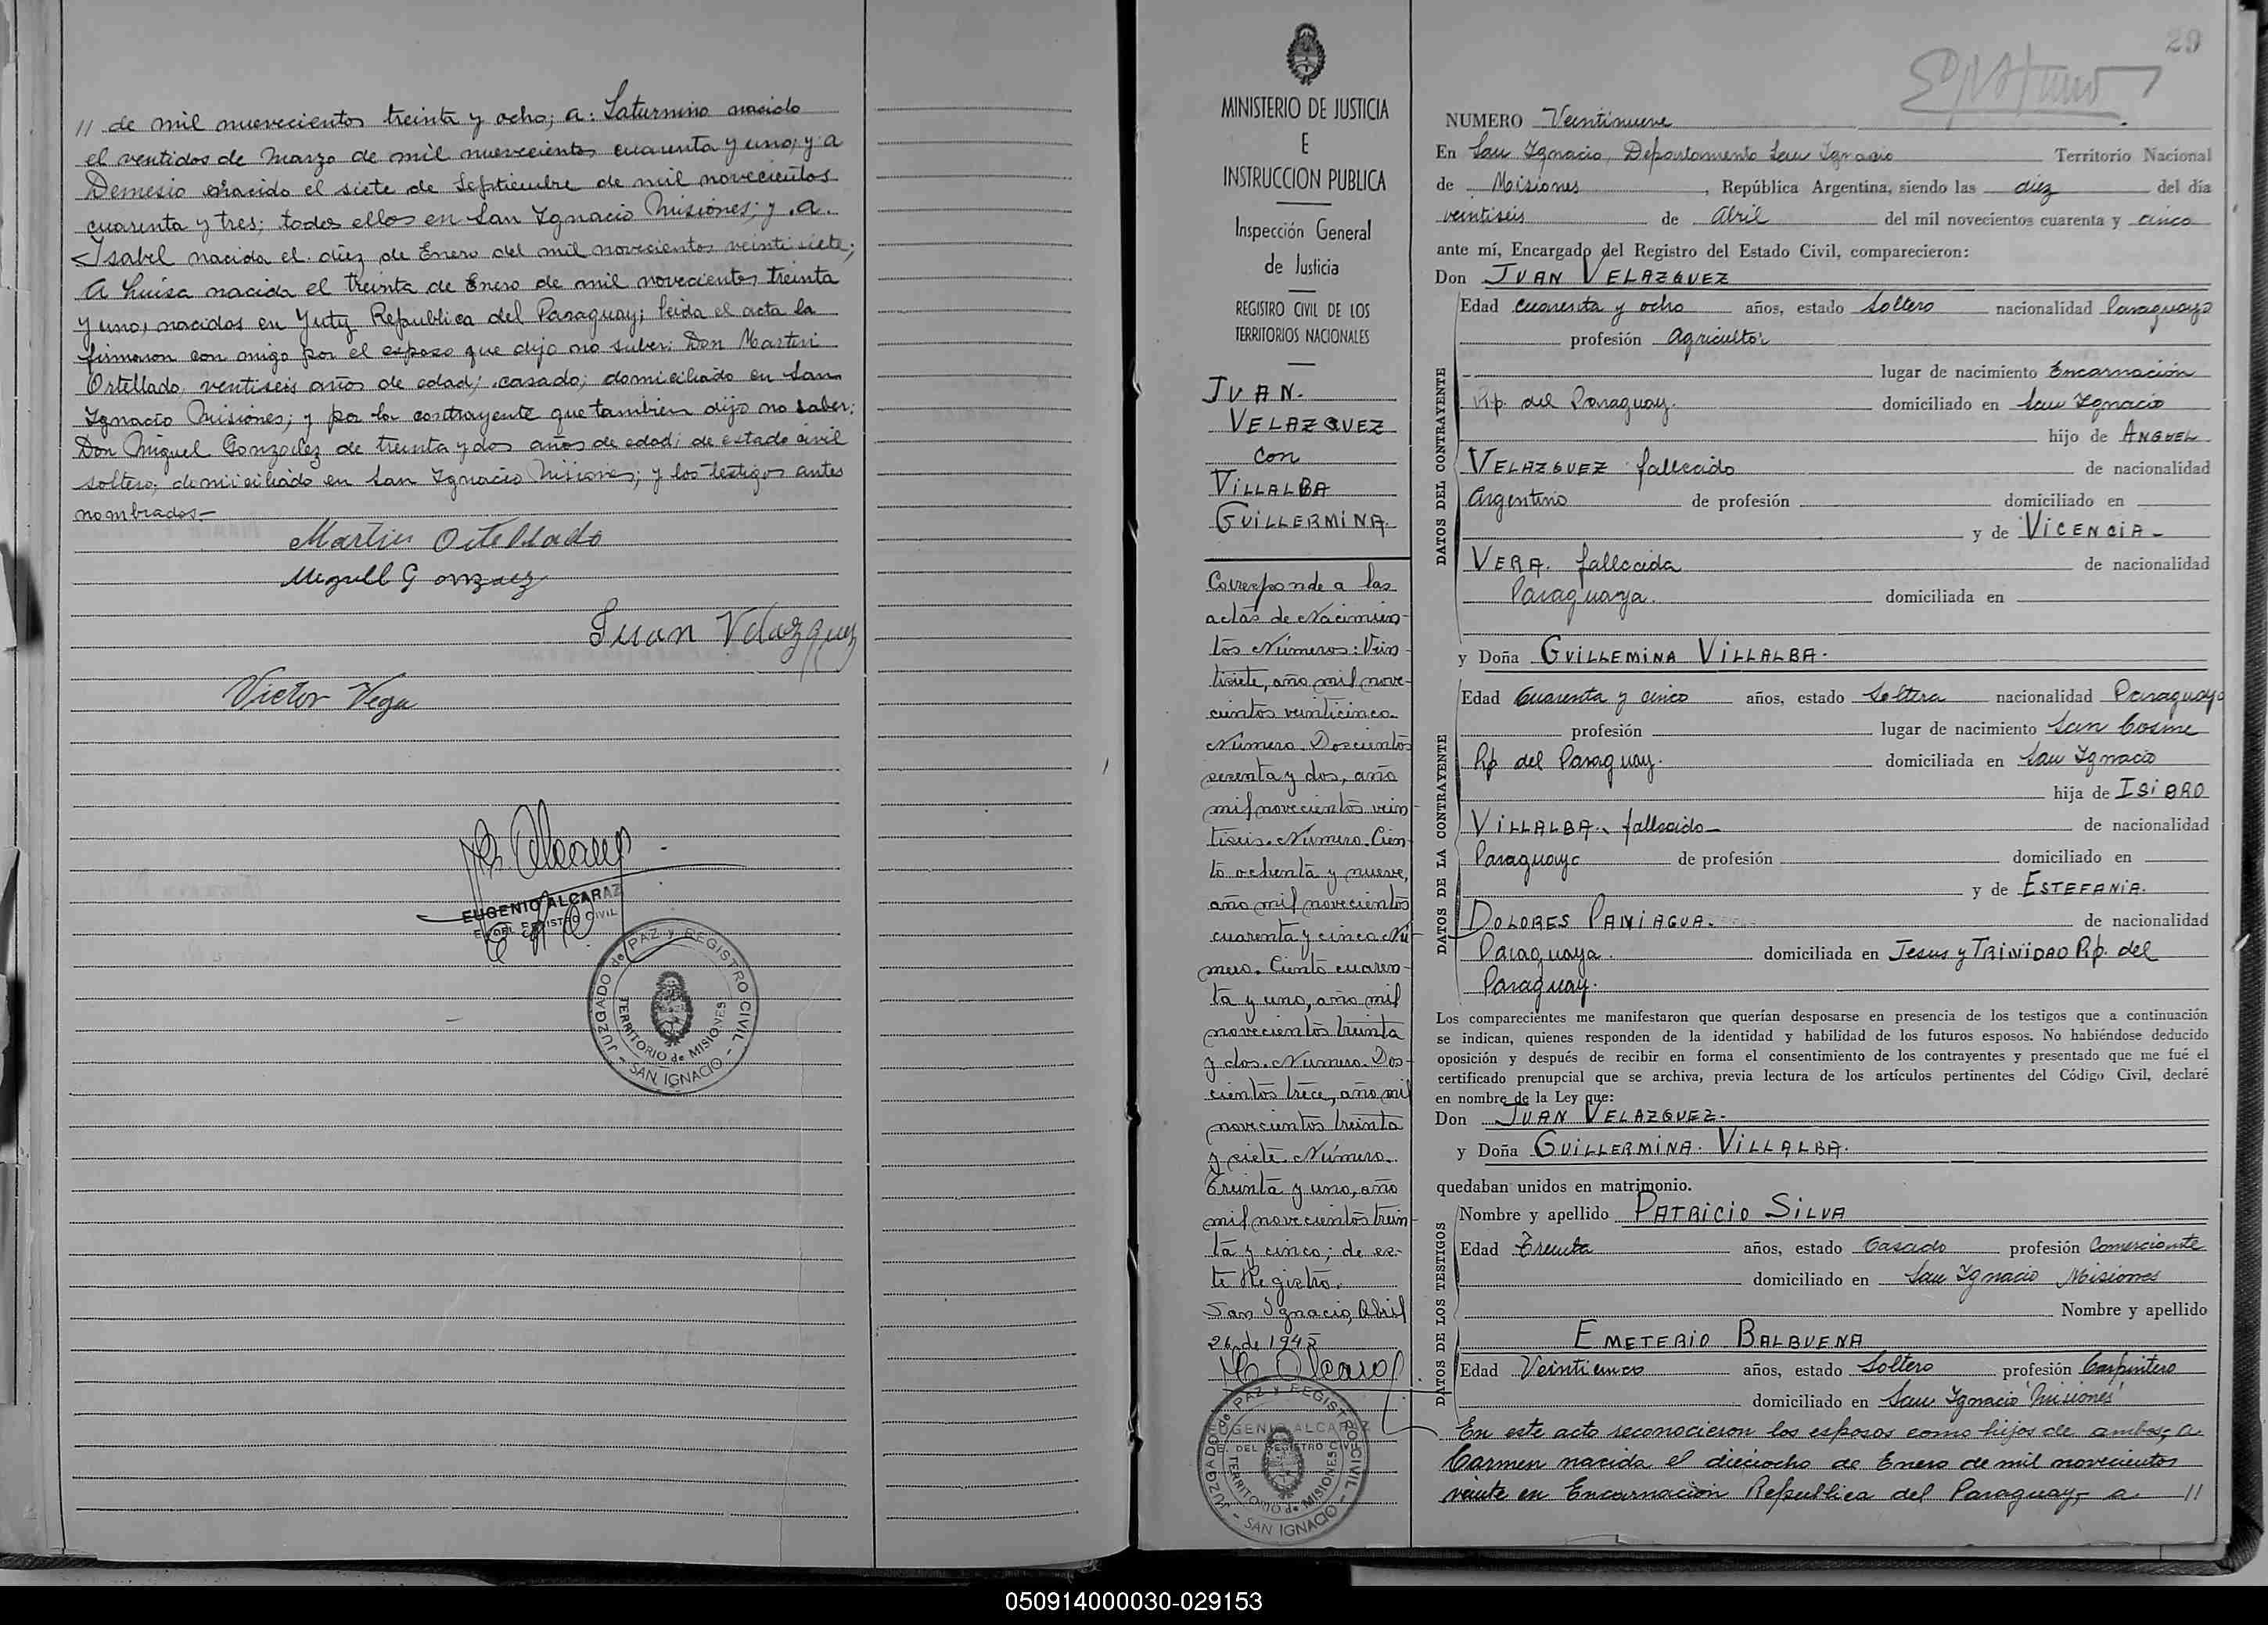 // de mil nuevecientos treinta y ocho; a: Saturnino nacido
el ventidos de Marzo de mil nuevecientos cuarenta y uno; y a
Demesio nacido el siete de Septiembre de mil novecientos
cuarenta y tres; todos ellos en San Ygnacio Misiones; y a.
Isabel nacida el diez de Enero del mil novecientos veintisiete;
a Luisa nacida el treinta de Enero de mil novecientos treinta
y uno, nacidas en Yuty Republica del Paraguay; leida el acta la
firmaron con migo por el esposo que dijo no saber: Don Martin
Ortellado ventiseis años de edad; casado; domiciliado en San
Ygnacio Misiones; y por la contrayente que tambien dijo no saber;
Don Miguel Gonzalez de treinta y dos años de edad; de estado civil
soltero; domiciliado en San Ygnacio Misiones; y los testigos antes
nombrados.—
Martin Ortellado
Miguell Gonzaez
Juan Velazquez
Victor Vega
EUGENIO ALCARAZ
E. DEL REGISTRO CIVIL
JUZGADO de PAZ y REGISTRO CIVIL
TERRITORIO de MISIONES
- SAN IGNACIO -
MINISTERIO DE JUSTICIA
E
INSTRUCCION PUBLICA
Inspección General
de Justicia
REGISTRO CIVIL DE LOS
TERRITORIOS NACIONALES
JUAN.
VELAZQUEZ
con
VILLALBA
GUILLERMINA.
Corresponde a las
actas de Nacimien-
tos Números: Vein-
tisiete, año mil nove-
cientos veinticinco.
Número. Doscientos
sesenta y dos, año
mil novecientos vein-
tiseis. Número. Cien-
to ochenta y nueve,
año mil novecientos
cuarenta y cinco Nú-
mero. Ciento cuaren-
ta y uno, año mil
novecientos treinta
y dos. Número. Dos-
cientos trece, año mil
novecientos treinta
y siete. Número.
Treinta y uno, año
mil novecientos trein-
ta y cinco; de es-
te Registro.
San Ignacio, Abril
26 de 1945
EUGENIO ALCARAZ
E. DEL REGISTRO CIVIL
JUZGADO de PAZ y REGISTRO CIVIL
TERRITORIO de MISIONES
- SAN IGNACIO -
29
NUMERO Veintinueve
En San Ygnacio, Departamento San Ygnacio Territorio Nacional
de Misiones, República Argentina, siendo las diez del día
veintiseis de Abril del mil novecientos cuarenta y cinco
ante mí, Encargado del Registro del Estado Civil, comparecieron:
Don JUAN VELAZQUEZ
DATOS DEL CONTRAYENTE
Edad cuarenta y ocho años, estado Soltero nacionalidad Paraguayo
profesión Agricultor
lugar de nacimiento Encarnación
Rp. del Paraguay. domiciliado en San Ygnacio
hijo de ANGUEL
VELAZQUEZ fallecido de nacionalidad
Argentino de profesión domiciliado en
y de VICENCIA-
VERA. fallecida de nacionalidad
Paraguaya. domiciliada en
y Doña GUILLEMINA VILLALBA.
DATOS DE LA CONTRAYENTE
Edad Cuarenta y cinco años, estado Soltera nacionalidad Paraguaya
profesión lugar de nacimiento San Cosme
Rp del Paraguay. domiciliada en San Ygnacio
hija de ISIDRO
VILLALBA. fallecido de nacionalidad
Paraguayo de profesión domiciliado en
y de ESTEFANIA.
DOLORES PANIAGUA. de nacionalidad
Paraguaya. domiciliada en Jesus y TRINIDAD Rp. del
Paraguay.
Los comparecientes me manifestaron que querían desposarse en presencia de los testigos que a continuación
se indican, quienes responden de la identidad y habilidad de los futuros esposos. No habiéndose deducido
oposición y después de recibir en forma el consentimiento de los contrayentes y presentado que me fué el
certificado prenupcial que se archiva, previa lectura de los artículos pertinentes del Código Civil, declaré
en nombre de la Ley que:
Don JUAN VELAZQUEZ.
y Doña GUILLERMINA. VILLALBA.
quedaban unidos en matrimonio.
DATOS DE LOS TESTIGOS
Nombre y apellido PATRICIO SILVA
Edad Treinta años, estado Casado profesión Comerciante
domiciliado en San Ygnacio Misiones
Nombre y apellido
EMETERIO BALBUENA
Edad años, estado Soltero profesión Carpintero
domiciliado en San Ygnacio Misiones
En este acto reconocieron los esposos como hijos de ambos, a
Carmen nacida el dieciocho de Enero de mil novecientos
veinte en Encarnación Republica del Paraguay; a //
050914000030-029153